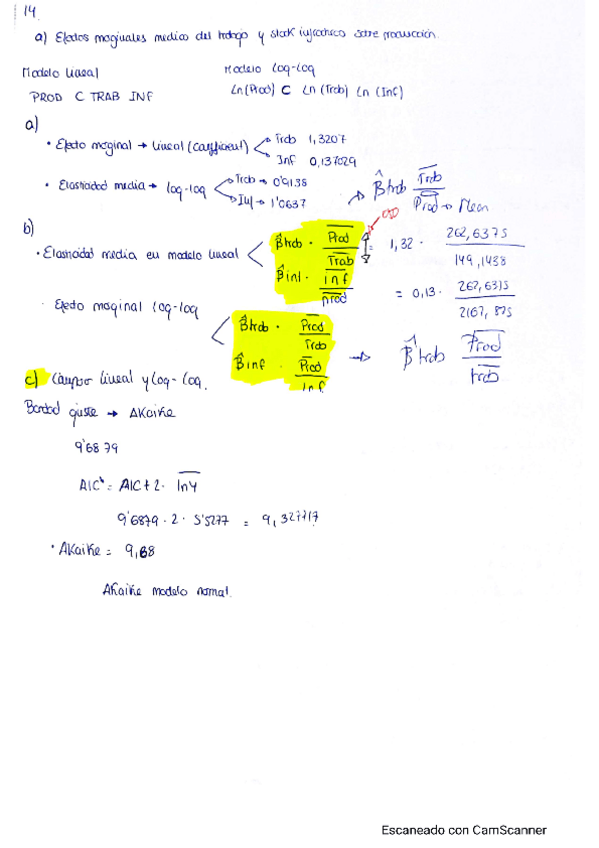 14
a) Efectos marginales medios del trabajo y stock sobre producción.
Modelo lineal
PROD C TRAB INF
Modelo log-log
Ln(Prod) C Ln (Trab) Ln (Inf)
a)
• Efecto marginal → lineal (coefficient) Trab 1,3207
Inf 0,137029
• Elasticidad media → log-log Trab → 0'9138
Inf → 1'0637
→ β̂trab Trab
Prod → Mean
b)
• Elasticidad media en modelo lineal β̂trab · Prod / Trab = 1,32 · 262,6375 / 149,1438
β̂inf · inf / prod = 0,13 · 267,6315 / 2167,875
· Efecto marginal log-log
β̂trab · Prod / Trab → β̂trab Prod / trab
β̂inf · Prod / inf
c) lineal y log-log.
Bondad ajuste → AKaiKe
9'6879
AIC* = AIC + 2 · lnY
9'6879 · 2 · 5'5277 = 9,327717
• AKaiKe = 9,68
AKaiKe modelo normal.
Escaneado con CamScanner